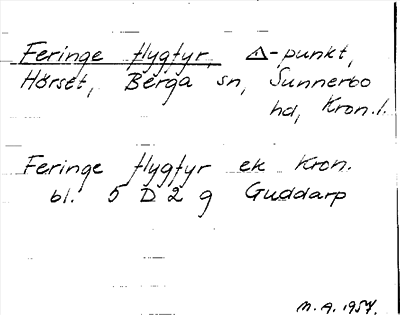 Feringe flygfyr, △-punkt,
Hörset, Berga sn, Sunnerbo
hd, Kron. l.
Feringe flygfyr ek Kron.
bl. 5 D 2 g Guddarp
M. A. 1957.